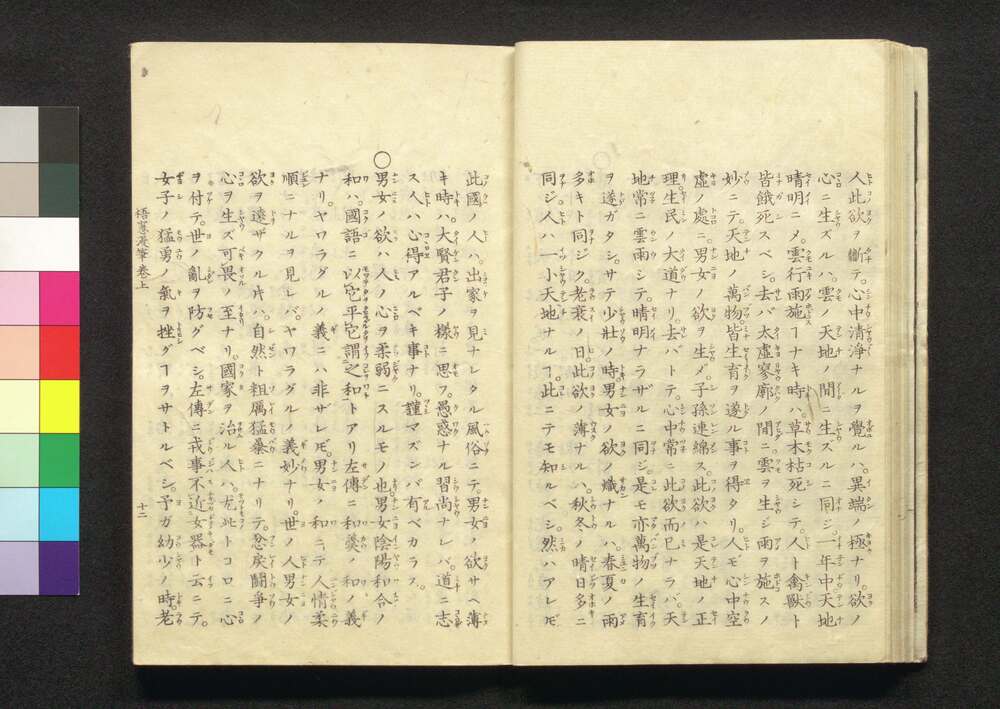 人此欲ヲ斷テ。心中清淨ナルヲ覺ルハ。異端ノ極ナリ。欲ノ
心ニ生ズルハ。雲ノ天地ノ間ニ生ズルニ同ジ。一年中天地
晴明ニメ。雲行雨施ヿナキ時ハ。草木枯死シテ。人ト禽獸ト
皆餓死スベシ。去バ太虛寥廓ノ間ニ。雲ヲ生シ雨ヲ施スノ
妙ニテ。天地ノ萬物皆生育ヲ遂ル事ヲ得タリ。人モ心中空
虛ノ處ニ。男女ノ欲ヲ生メ。子孫連綿ス。此欲ハ是天地ノ正
理生民ノ大道ナリ。去バトテ。心中常ニ此欲而已ナラバ。天
地常ニ雲雨シテ。晴明ナラザルニ同シ。是モ亦萬物ノ生育
ヲ遂ガタシ。サテ少壯ノ時。男女ノ欲ノ熾ナルハ。春夏ノ雨
多キト同ジク。老衰ノ日此欲ノ薄ナルハ。秋冬ノ晴日多キニ
同ジ。人ハ一小天地ナルヿ。此ニテモ知ルベシ。然ハアレ𪜈
此國ノ人ハ。出家ヲ見ナレタル風俗ニテ。男女ノ欲サベ薄
キ時ハ。大賢君子ノ樣ニ思フ。愚惑ナル習尚ナレバ。道ニ志
ス人ハ心得アルベキ事ナリ。謹マズンバ有ベカラス。
○男女ノ欲ハ人ノ心ヲ柔弱ニスルモノ也男女陰陽和合ノ
和ハ。國語ニ以它平它謂之和トアリ左傳ニ和羹ノ和ノ義
ナリ。ヤワラグルノ義ニハ非ザレ𪜈。男女ノ和ニテ人情柔
順ニナルヲ見レバ。ヤワラグルノ義妙ナリ。世ノ人男女ノ
欲ヲ遠ザクル片ハ。自然ト粗厲猛暴ニナリテ。忿戾鬪爭ノ
心ヲ生ズ可畏ノ至ナリ。國家ヲ治ル人ハ。尤此トコロニ心
ヲ付テ。世ノ亂ヲ防グベシ。左傳ニ戎事不近女器ト云ニテ。
女子ノ猛勇ノ氣ヲ挫グヿヲサトルベシ。予ガ幼少ノ時。老
梧窓漫筆卷上
十二